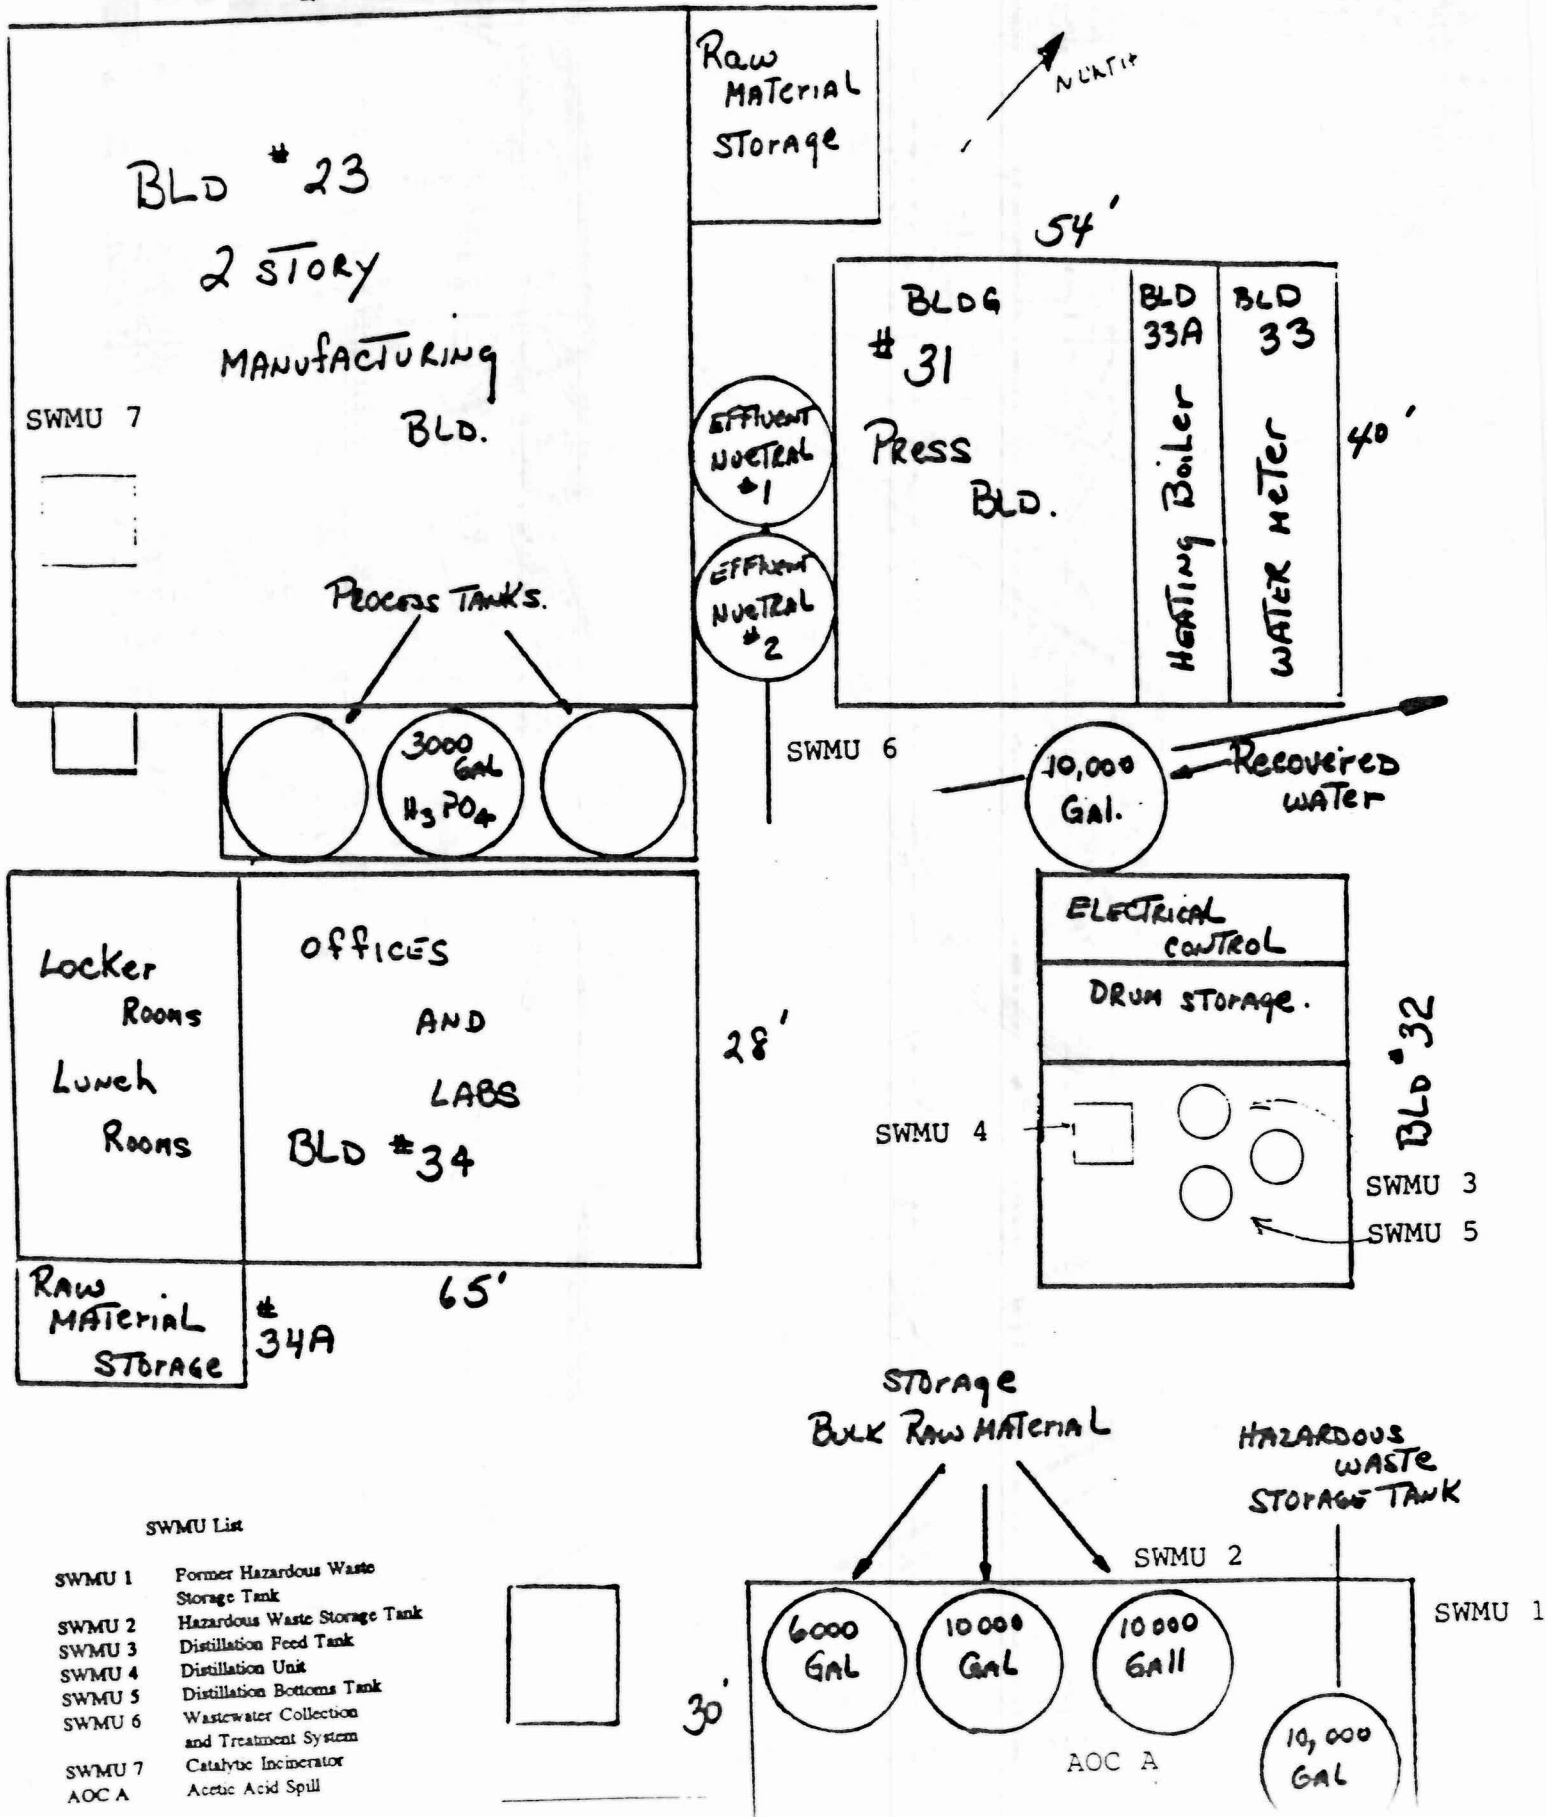 Raw
MATerial
STorage
NORTH
BLD #23
2 STORY
MANUfACTURING
BLD.
SWMU 7
54'
BLDG
# 31
PRess
BLD.
BLD
33A
HEATING Boiler
BLD
33
WATER METer
40'
EFFluent
NUETRAL
#1
EFFluent
NUETRAL
#2
PROCESS TANKS.
3000
GAL
H3 PO4
SWMU 6
10,000
GAl.
Recovered
WATer
ELECTRICAL
CONTROL
DRUM STOrAge.
BLD #32
SWMU 4
SWMU 3
SWMU 5
Locker
Rooms
Lunch
Rooms
OffICES
AND
LABS
BLD #34
28'
65'
RAW
MATerial
STOrAGe
#
34A
STOrAge
BULK RAW MATerial
HAZARDOUS
WASTe
STOrAGE TANK
SWMU 2
SWMU 1
6000
GAL
10000
GAL
10000
GAll
10,000
GAL
30'
AOC A
SWMU List
SWMU 1 Former Hazardous Waste
Storage Tank
SWMU 2 Hazardous Waste Storage Tank
SWMU 3 Distillation Feed Tank
SWMU 4 Distillation Unit
SWMU 5 Distillation Bottoms Tank
SWMU 6 Wastewater Collection
and Treatment System
SWMU 7 Catalytic Incinerator
AOC A Acetic Acid Spill